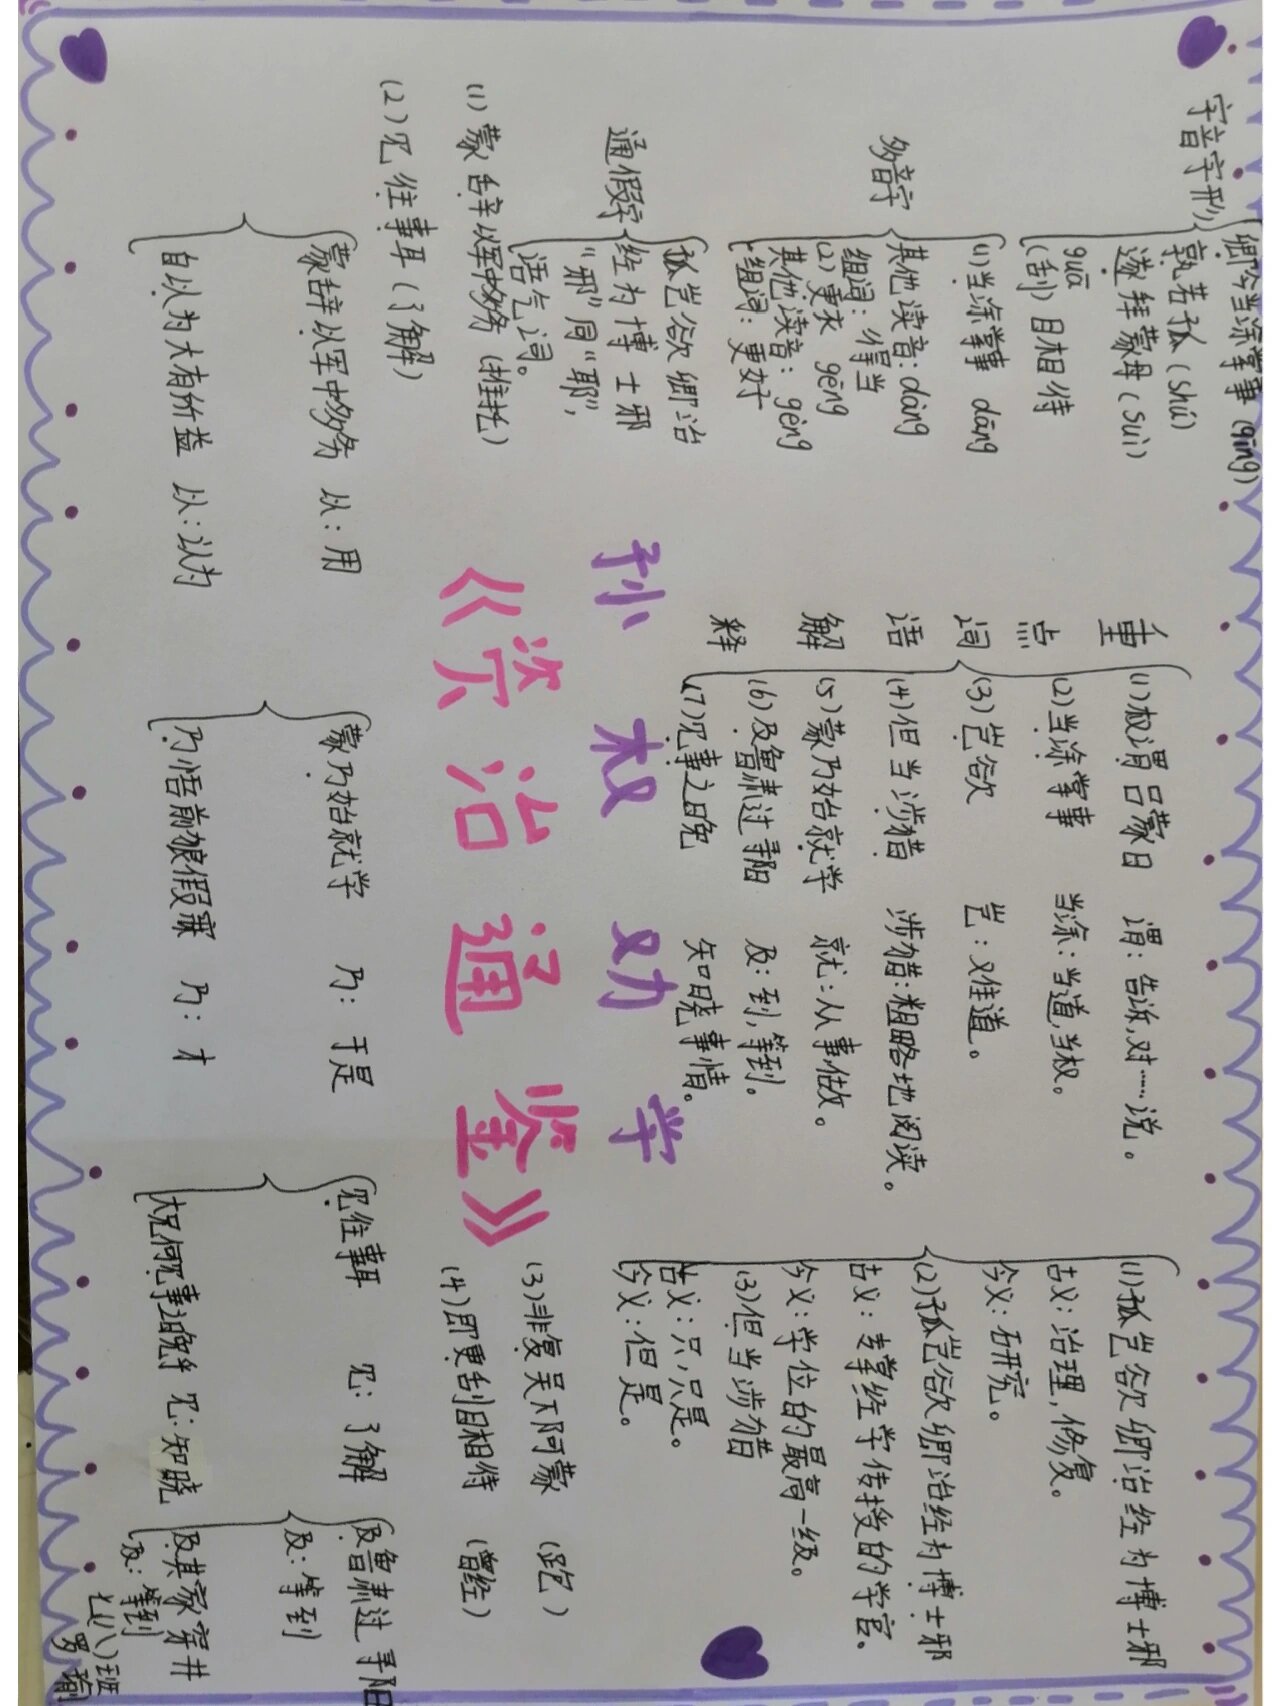 字音字形
卿今当涂掌事(qīng)
孰若孤(shú)
遂拜蒙母(suì)
guā
(刮)目相待
多音字
(1)当涂掌事 dāng
其他读音:dàng
组词:得当
(2)更衣 gēng
其他读音:gèng
组词:更好
通假字
孤岂欲卿治
经为博士邪
“邪”同“耶”,
语气词。
重点词语解释
(1)权谓吕蒙曰 谓:告诉,对……说。
(2)当涂掌事 当涂:当道,当权。
(3)岂欲 岂:难道。
(4)但当涉猎 涉猎:粗略地阅读。
(5)蒙乃始就学 就:从事做。
(6)及鲁肃过寻阳 及:到,等到。
(7)见事之晚 知晓事情。
(1)孤岂欲卿治经为博士邪
古义:治理,修复。
今义:研究。
(2)孤岂欲卿治经为博士邪
古义:专掌经学传授的学官。
今义:学位的最高一级。
(3)但当涉猎
古义:只,只是。
今义:但是。
孙权劝学
《资治通鉴》
(1)蒙辞以军中多务(推托)
(2)见往事耳(了解)
(3)非复吴下阿蒙
(4)即更刮目相待
蒙辞以军中多务 以:用
自以为大有所益 以:认为
蒙乃始就学 乃:于是
乃悟前狼假寐 乃:才
见往事耳 见:了解
大兄何见事之晚乎 见:知晓
及鲁肃过寻阳
及:等到
及其家穿井
及:等到
七(八)班
罗瑜